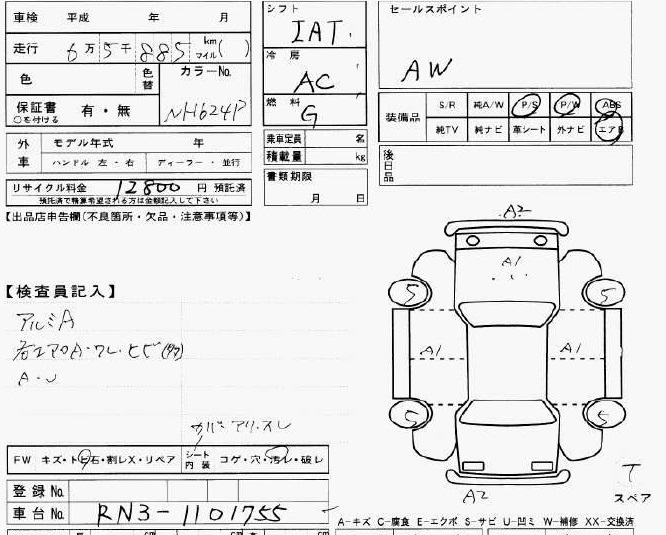 車検 平成 年 月
走行 6万5千885 km マイル( )
色 色替 カラーNo. NH624P
保証書 ○を付ける 有・無
外車 モデル年式 年
ハンドル 左・右 ディーラー・並行
リサイクル料金 12800 円 預託済
預託済で精算希望される方は金額記入して下さい
【出品店申告欄(不良箇所・欠品・注意事項等)】
シフト IAT
冷房 AC
燃料 G
乗車定員 名
積載量 kg
書類期限
月 日
セールスポイント
AW
装備品 S/R 純A/W P/S P/W ABS
純TV 純ナビ 革シート 外ナビ エアB
後日品
【検査員記入】
アルミA
A・U
FW キズ・トビ石・割レX・リペア シート内装 コゲ・穴・汚レ・破レ
登録No.
車台No. RN3-1101755
A2
A1
5 5
A1 A1
5 5
A2
T
スペア
A-キズ C-腐食 E-エクボ S-サビ U-凹ミ W-補修 XX-交換済
cm cm cm